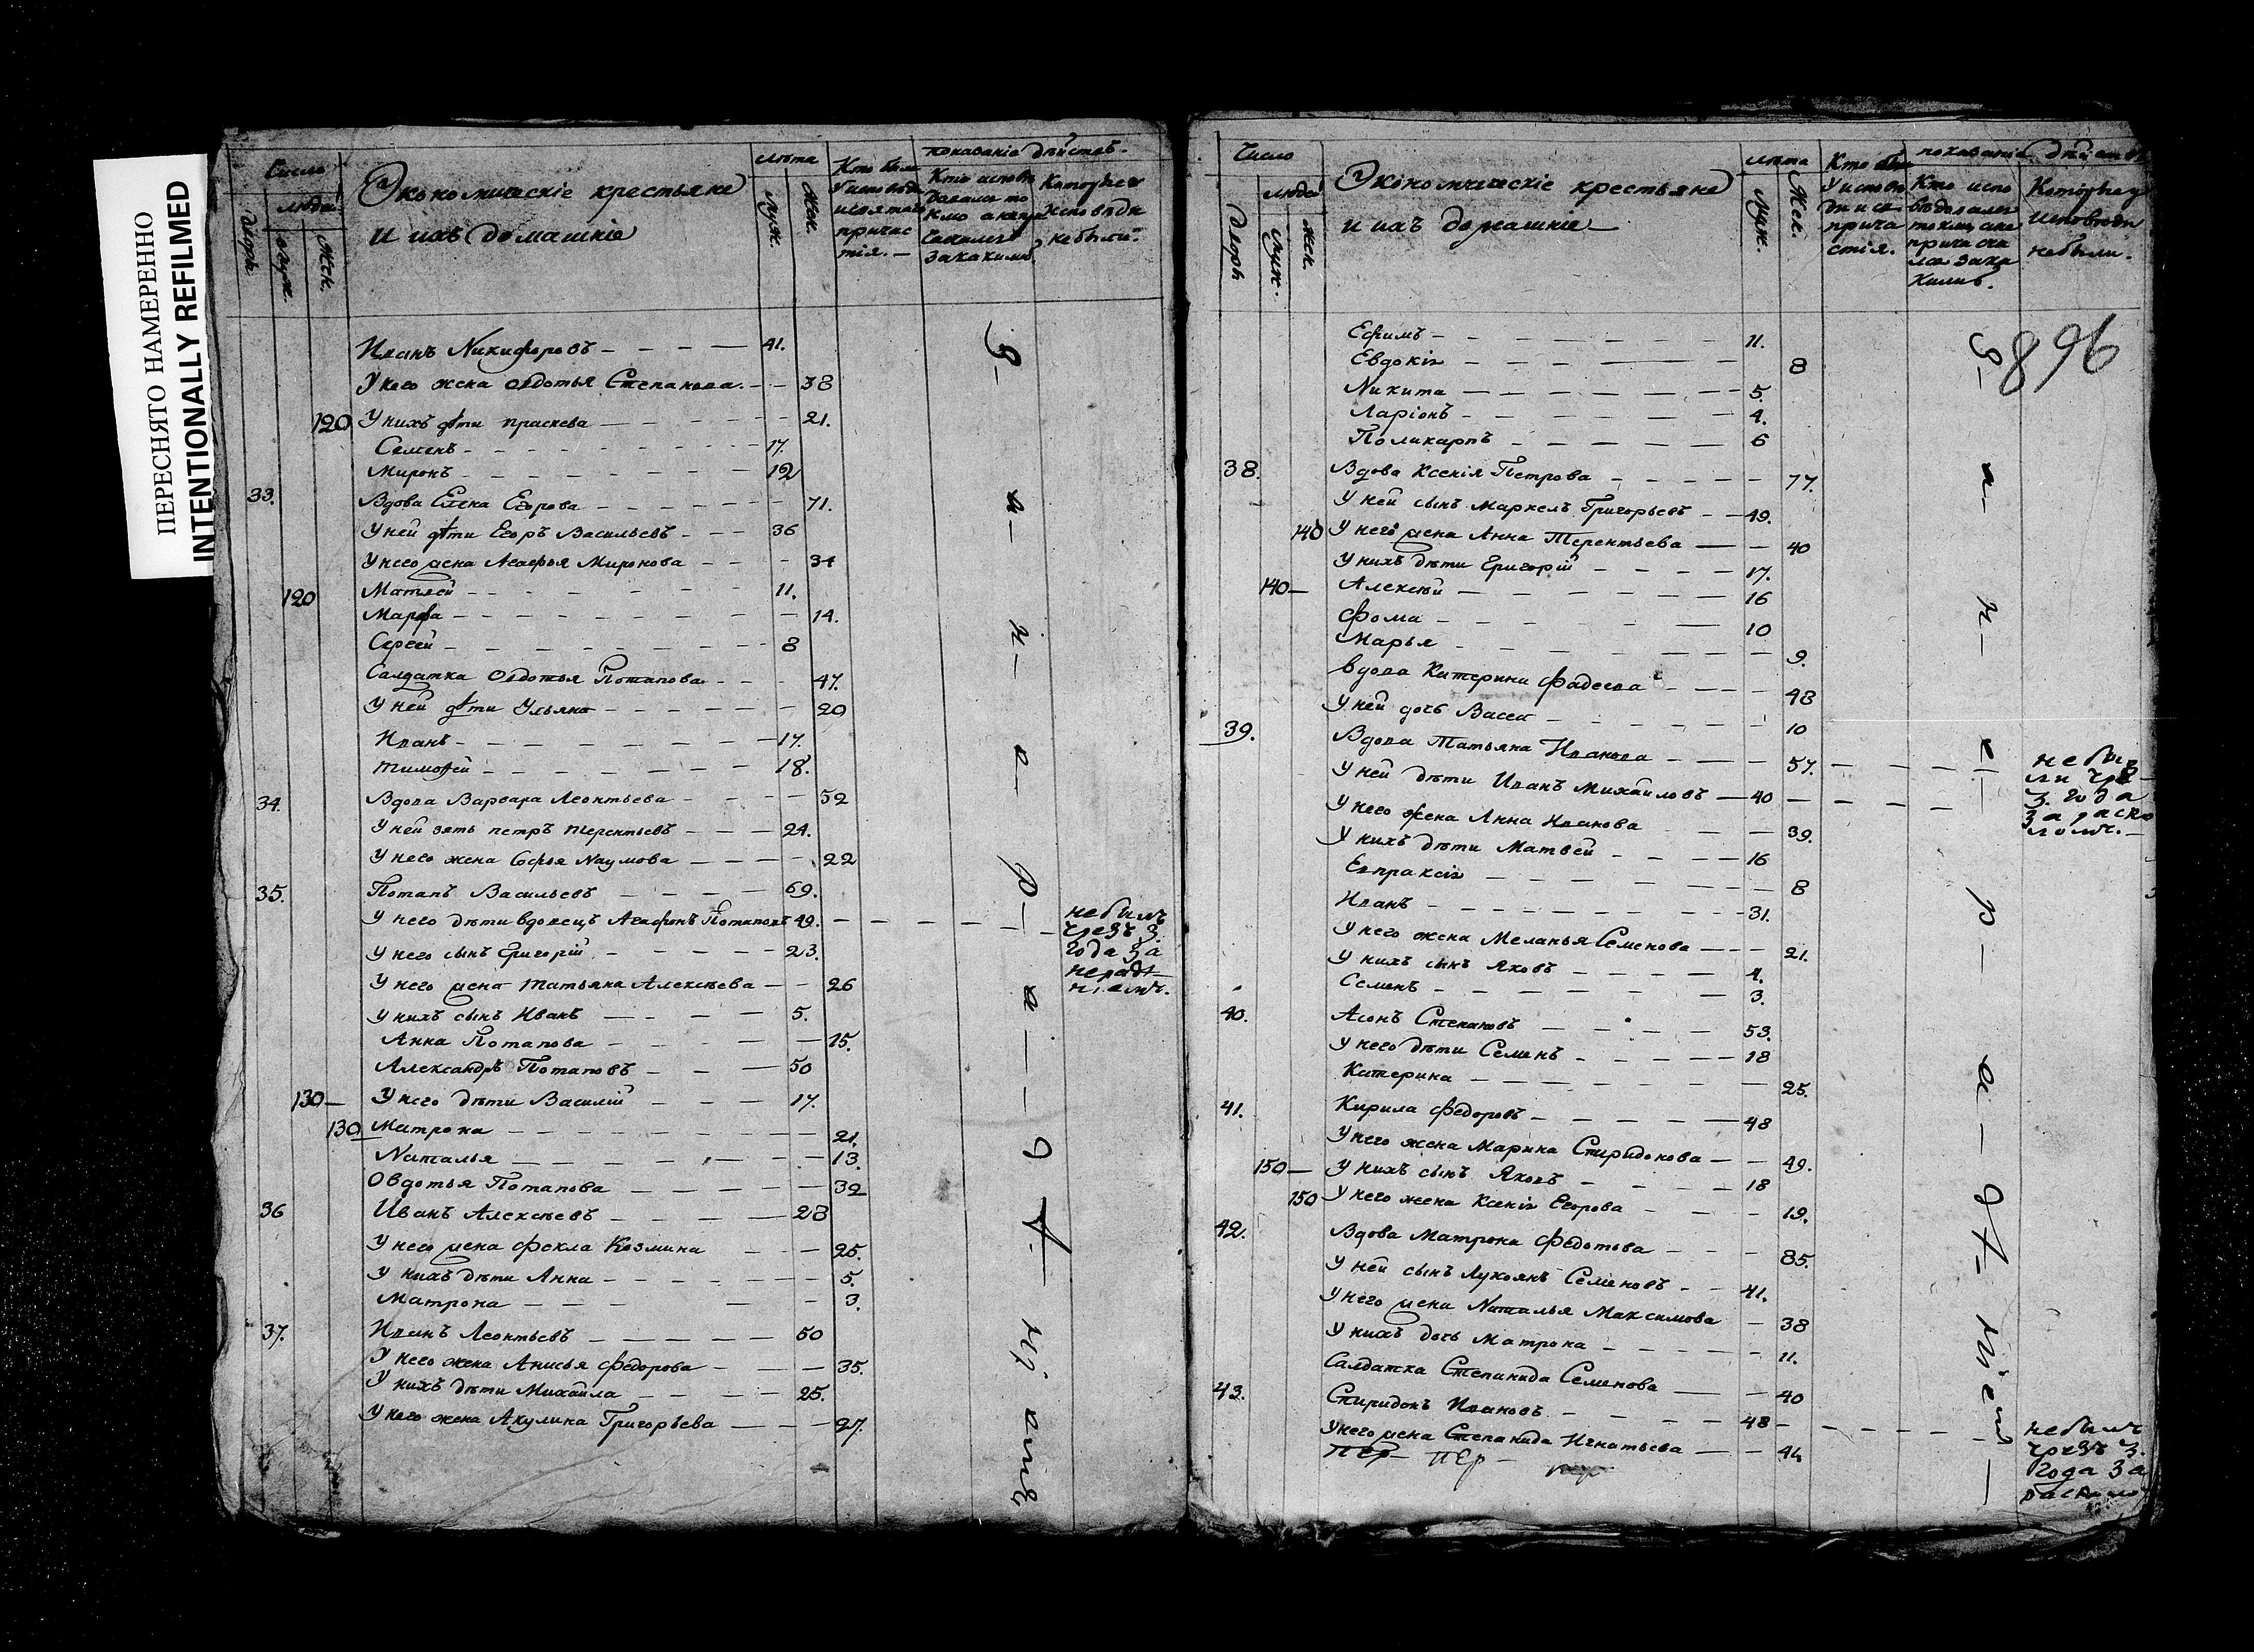 ПЕРЕСНЯТО НАМЕРЕННО
INTENTIONALLY REFILMED
Число
людей
дворъ.
муж.
жен.
Экономическіе крестьяне
и ихъ домашніе
лѣта
муж.
жен.
показаніе дѣйств.
Кто были
У исповѣди
и святаго
причас
тія. —
Кто испов
довались то
кмо а непри
чащались
за какимъ
Которые
исповѣди
не были.
Иванъ Никифоровъ — 41.
У него жена Овдотья Степанова. — 38
120 У нихъ дѣти Праскева — 21.
Семенъ — 17.
Миронъ — 12
33. Вдова Елена Егорова — 71.
У ней дѣти Егоръ Васильевъ — 36
У него жена Агафья Миронова — 34
120 Матвей — 11.
Марфа — 14.
Сергей — 8
Салдатка Овдотья Потапова — 47.
У ней дѣти Ульяна — 20
Иванъ — 17.
Тимофей — 18.
34. Вдова Варвара Леонтьева — 52
У ней зять Петръ Терентьевъ — 24.
У него жена Софья Наумова — 22
35. Потапъ Васильевъ — 69.
У него дѣти вдовецъ Агафонъ Потаповъ 49. — небылъ
чрезъ 3.
года за
нерадѣ
ніемъ.
У него сынъ Григорій — 23.
У него жена Татьяна Алексѣева — 26
У нихъ сынъ Иванъ — 5.
Анна Потапова — 15.
Александръ Потаповъ — 50
130 — У него дѣти Василій — 17.
130 Матрона — 21.
Наталья — 13.
Овдотья Потапова — 32
36 Иванъ Алексѣевъ — 28
У него жена Фекла Козмина — 25.
У нихъ дѣти Анна — 5.
Матрона — 3.
37. Иванъ Леонтьевъ — 50
У него жена Анисья Федорова — 35.
У нихъ дѣти Михаила — 25.
У него жена Акулина Григорьева — 27.
Число
людей
дворъ
муж.
жен.
Экономическіе крестьяне
и ихъ домашніе
лѣта
муж.
жен.
показаніе дѣйств
Кто были
У испове
ди и св
прича
стія.
Кто испо
ведовались
токмо, а не
прича сти
лся зака
кимъ.
Которые у
исповѣди
небыли.
896
Ефимъ — 11.
Евдокія — 8
Никита — 5.
Ларіонъ — 4.
Поликарпъ — 6
38. Вдова Ксенія Петрова — 77.
У ней сынъ Маркелъ Григорьевъ — 49.
140 У него жена Анна Терентьева — 40
У нихъ дѣти Григорій — 17.
140 — Алексѣй — 16
Фома — 10
Марья — 9.
Вдова Катерина Фадеева — 48
У ней дочь Васса — 10
39. Вдова Татьяна Иванова — 57. — небы
ли чрез
3. года
за раско
ломъ. —
У ней дѣти Иванъ Михайловъ — 40
У него жена Анна Иванова — 39.
У нихъ дѣти Матвей — 16
Евпраксія — 8
Иванъ — 31.
У него жена Меланья Семенова — 21.
У нихъ сынъ Яковъ — 4.
Семенъ — 3.
40. Агонъ Степановъ — 53.
У него дѣти Семенъ — 18
Катерина — 25.
41. Кирила Федоровъ — 48
У него жена Марина Спиридонова — 49.
150 — У нихъ сынъ Яковъ — 18
150 У него жена Ксенія Егорова — 19.
42. Вдова Матрона Федотова — 85.
У ней сынъ Лукоянъ Семеновъ — 41.
У него жена Наталья Максимова — 38
У нихъ дочь Матрона — 11.
Салдатка Степанида Семенова — 40
43. Спиридонъ Ивановъ — 48 — небылъ
чрезъ 3.
года за
расколо
У него жена Степанида Игнатьева — 44
пер — пер —
за нерадѣніемъ
за нерадѣніемъ —